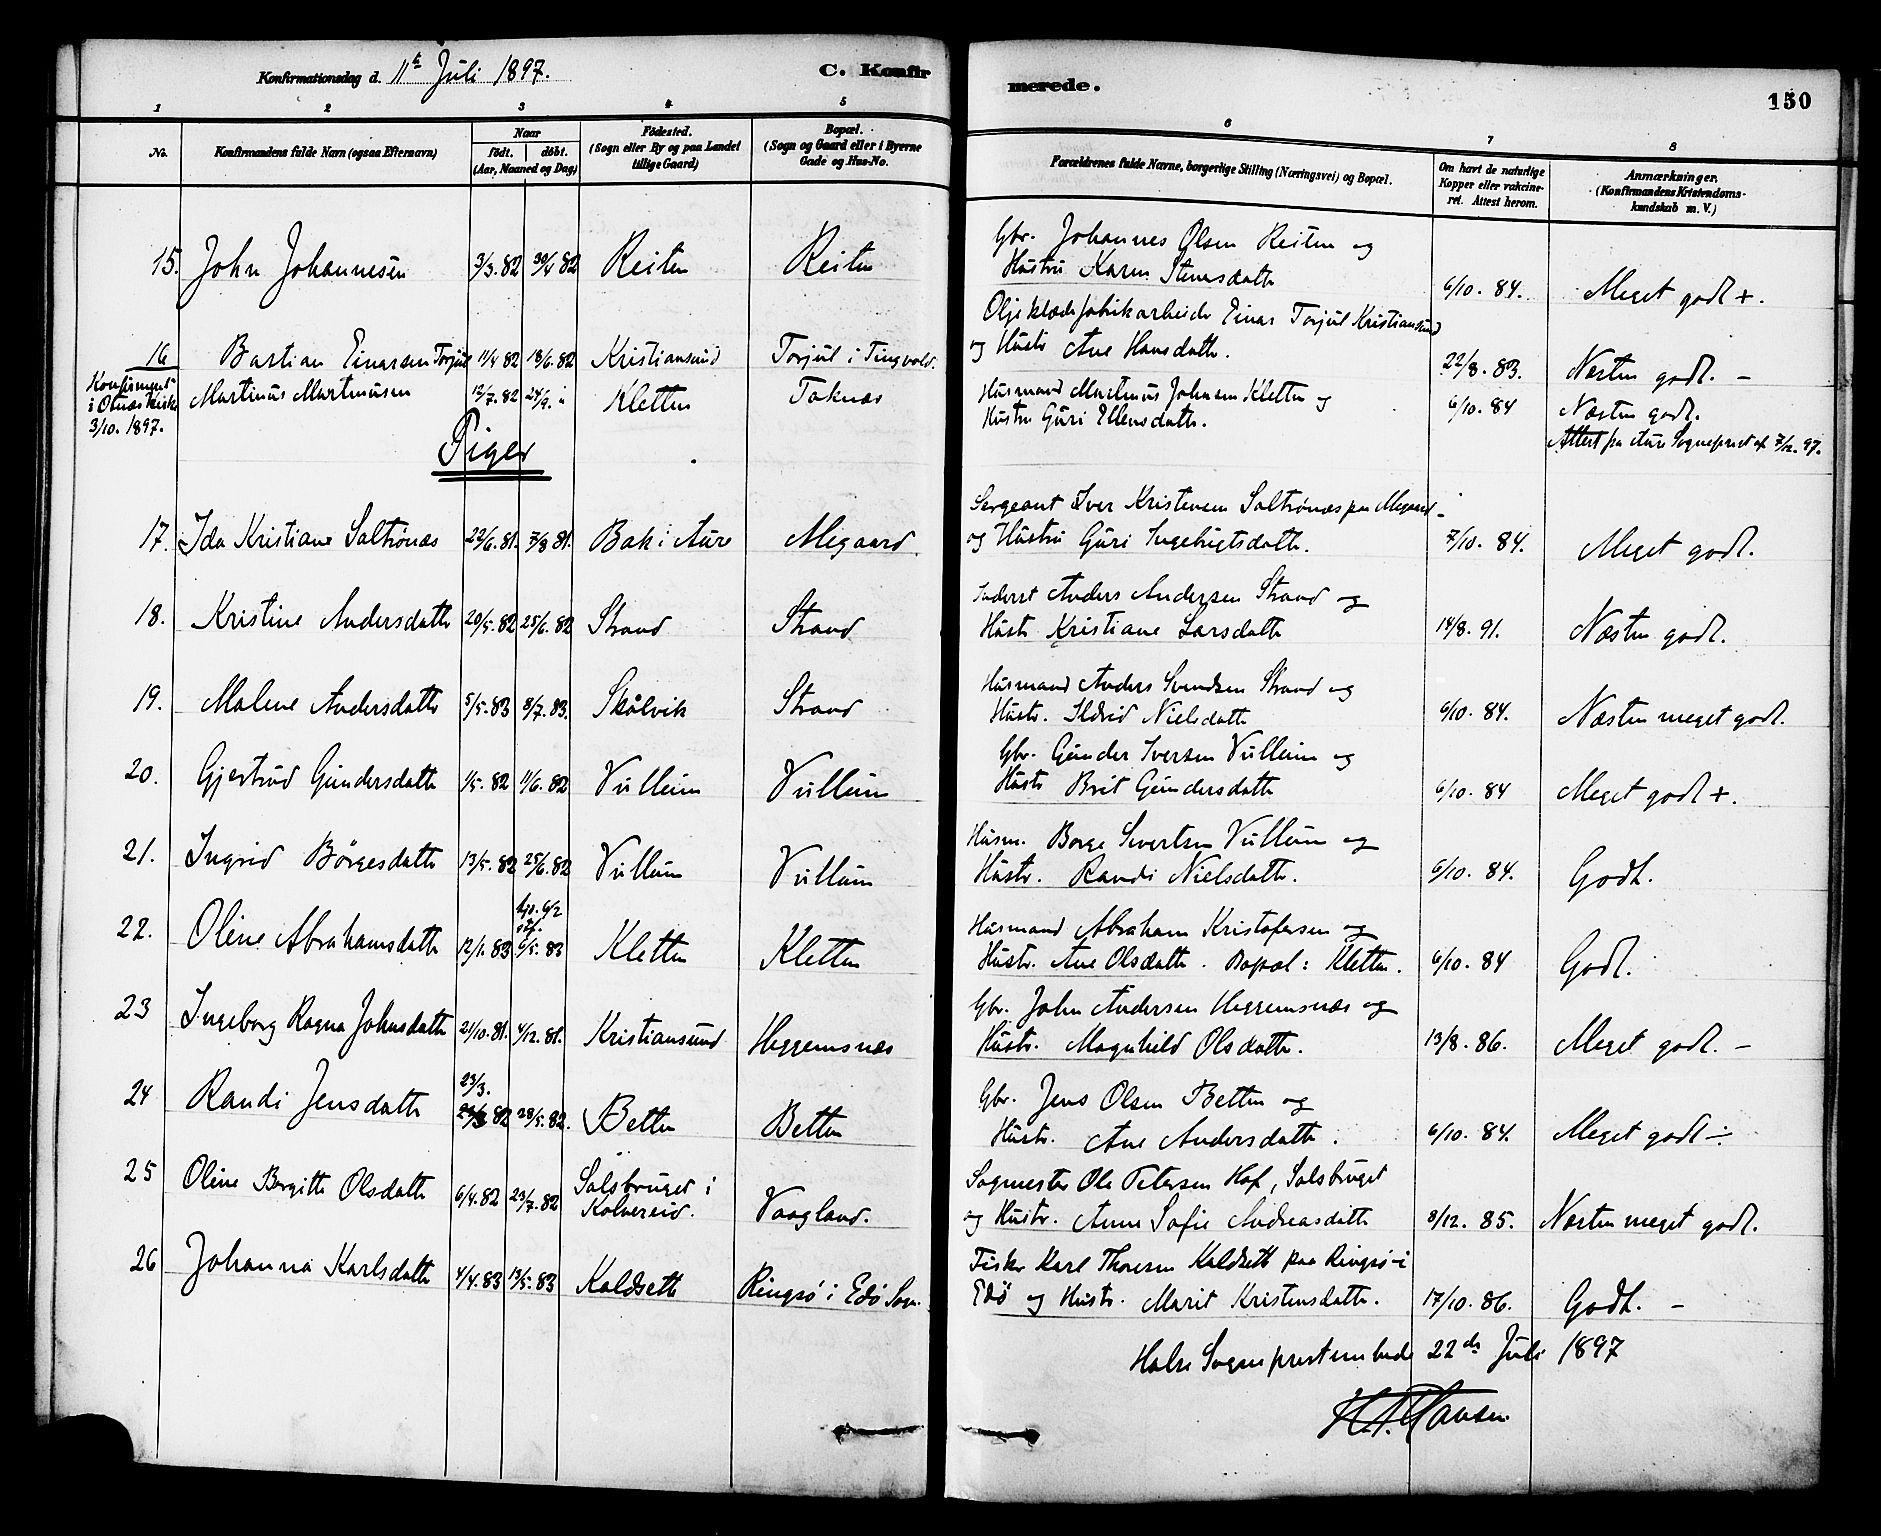 Konfirmationsdag d. 11te Juli 1897.
C. Konfirmerede.
150
1 2 3 4 5 6 7 8
No.
Konfirmandens fulde Navn (ogsaa Efternavn)
Naar
födt. döbt.
(Aar, Maaned og Dag)
Födested.
(Sogn eller By og paa Landet
tillige Gaard)
Bopæl.
(Sogn og Gaard eller i Byerne
Gade og Hus-No.
Forældrenes fulde Navne, borgerlige Stilling (Næringsvei) og Bopæl.
Om havt de naturlige
Kopper eller vakcine-
ret. Attest herom.
Anmærkninger.
(Konfirmandens Kristendoms-
kundskab m. V.)
15. John Johannesen 3/3. 82 30/4 82 Reiten Reiten
Gbr. Johannes Olsen Reiten og
Hustru Karen Stenersdatter 6/10. 84. Meget godt +.
16 Bastian Einarsen Torjul 11/4 82 18/6. 82 Kristiansund Torjul i Tingvold.
Oljeklædefabrikarbeider Einar Torjul Kristiansund
og Hustr Ane Hansdatter. 22/8. 83. Næsten godt. -
Konfirmert
i Otnæs kirke
3/10. 1897.
Martinus Martinusen 12/7. 82 24/9. " Kletten Taknæs
Husmand Martinus Johnsen Kletten og
Hustru Guri Ellensdatter. 6/10. 84 Næsten godt.
Attest fra Aure Sognepræst af 7/12. 97.
Piger
17. Ida Kristiane Saltrönæs 22/6. 81. 7/8 81. Bak i Aure Megaard
Sergeant Iver Kristensen Saltrönæs paa Megaard
og Hustru Guri Ingebrigtsdatter. 7/10. 84. Meget godt.
18. Kristine Andersdatter 20/5. 82 25/6. 82 Strand Strand
Inderst Anders Andersen Strand og
Hustr Kristiane Larsdatter 14/8. 91. Næsten godt.
19. Malene Andersdatter 5/5. 83 8/7. 83. Skålvik Strand
Husmand Anders Svendsen Strand og
Hustr. Ildrid Nielsdatter 6/10. 84. Næsten meget godt.
20. Gjertrud Gundersdatter 1/5. 82 11/6. 82 Vullum Vullum
Gbr. Gunder Iversen Vullum og
Hustr Brit Gundersdatter 6/10. 84 Meget godt +.
21. Ingrid Börgesdatter 13/5. 82 25/6. 82 Vullum Vullum
Husm. Borge Sivertsen Vullum og
Hustr. Randi Nielsdatter. 6/10. 84. Godt.
22. Oline Abrahamsdatter 12/1. 83 hjd. 6/2
stf. 6/5. 83 Kletten Kletten
Husmand Abraham Kristofersen og
Hustr. Ane Olsdatter. Bopæl: Kletten. 6/10. 84 Godt.
23 Ingeborg Ragna Johnsdatter 21/10. 81. 4/12. 81. Kristiansund Heggemsnæs
Gbr. John Andersen Heggemsnæs og
Hustr. Magnhild Olsdatter. 13/8. 86. Meget godt. -
24 Randi Jensdatter 23/3.
82 28/5. 82. Betten Betten
Gbr. Jens Olsen Betten og
Hustr. Ane Andersdatter. 6/10. 84. Meget godt ÷.
25 Oline Bergitte Olsdatter 6/4. 82 23/7. 82 Salsbruget i
Kolvereid. Vaagland.
Sagmester Ole Petersen Hof, Salsbruget
og Hustr. Anne Sofie Andreasdatter 8/12. 85. Næsten meget godt.
26 Johanna Karlsdatter 4/4. 83 13/5. 83 Koldsett Ringsö i Edö Sogn.
Fisker Karl Thoresen Koldsett paa Ringsö i
Edö og Hustr. Marit Kristensdatter. 17/10. 86. Godt. -
Halse Sogneprestembede 22de Juli 1897
Hansen